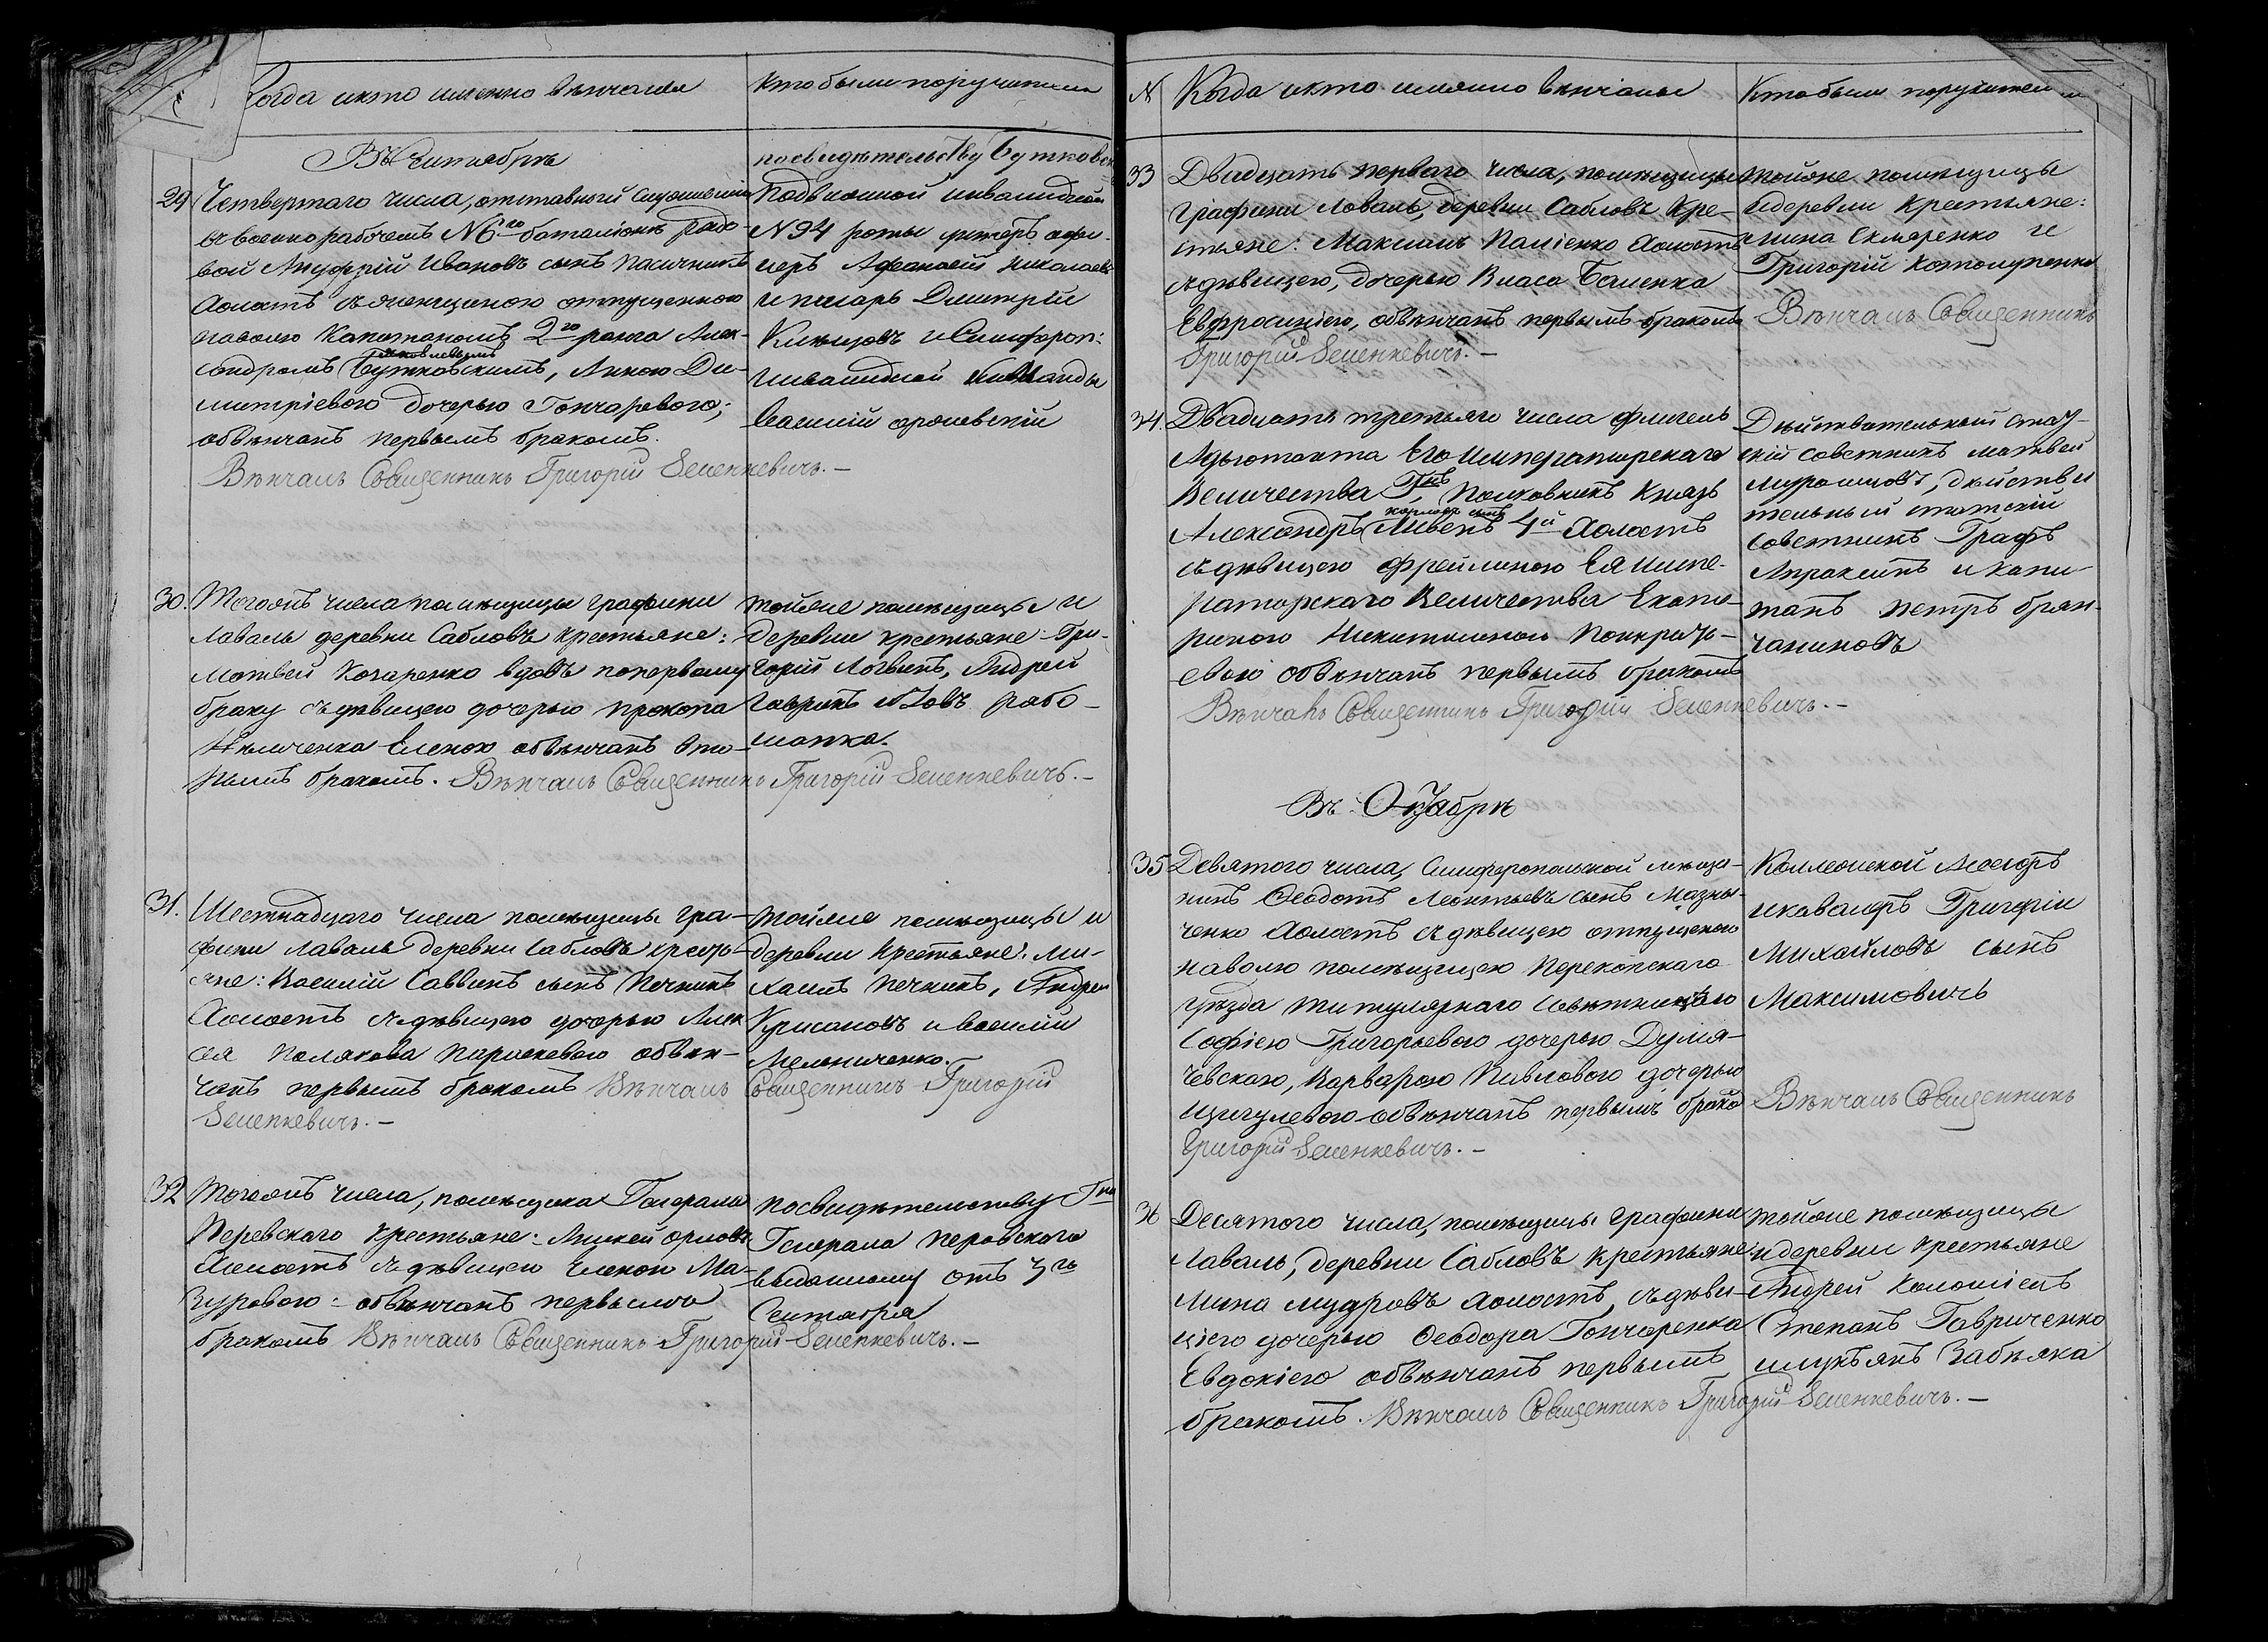 Когда и кто именно венчаны
Кто были поручители
Въ Сентябрѣ
29 Четвертаго числа, отставной служившій
въ военно рабочемъ № 6го баталіонѣ рядо-
вой Ануфрій Ивановъ сынъ Пасичникъ
холостъ съ женщиною отпущенною
на волю Капитаномъ 2го ранга Алек-
сандромъ Яковлевымъ Бутковскимъ, Анною Ди-
митріевою дочерью Гончаровою;
обвѣнчанъ первымъ бракомъ.
Вѣнчалъ Священникъ Григорій Зеленкевичъ.-
по свидѣтельству Бутковск
Подвижной инвалидной
№ 94 роты унтеръ офи-
церъ Афанасій Николаевъ
и писарь Димитрій
Климовъ и Симфероп:
инвалидной команды
Василій
30. Тогожъ числа помѣщицы графини
Лаваль деревни Сабловъ крестьяне:
Матвей Козаренко вдовъ по первому
браку съ дѣвицею дочерью Прокопа
Ильченка Еленою обвѣнчанъ вто-
рымъ бракомъ. Вѣнчалъ Священникъ Григорій Зеленкевичъ.-
тойже помѣщицы и
деревни крестьяне: Гри-
горій Логвинъ, Андрей
Гавринъ и Іовъ Рябо-
шапка.
31. Шестнадцаго числа помѣщицы гра-
фини Лаваль деревни Сабловъ кресть-
яне: Василій Саввинъ сынъ Печникъ
холостъ съ дѣвицею дочерью Алек
сея Полякова Параскевою обвѣн-
чанъ первымъ бракомъ Вѣнчалъ Священникъ Григорій
Зеленкевичъ.-
тойже помѣщицы и
деревни крестьяне: Ми-
хаилъ Печникъ, Андрей
Курисановъ и Василій
Мельниченко.
32 Тогожъ числа, помѣщика Генерала
Перовскаго крестьяне: Алексей Орловъ
холостъ съ дѣвицею Еленою Ма-
зуровою: обвѣнчанъ первымъ
бракомъ Вѣнчалъ Священникъ Григорій Зеленкевичъ.-
по свидѣтельству Гна
Генерала Перовскаго
выданному отъ 7го
Сентября
№ Когда и кто имянно вѣнчаны
Кто были поручители
33 Двадцать перваго числа, помѣщицы
Графини Лаваль, деревни Сабловъ кре-
стьяне: Максимъ Паліенко холостъ
съ дѣвицею, дочерью Власа Баленка
Евфросиніею, обвѣнчанъ первымъ бракомъ
Григорій Зеленкевичъ.-
тойже помѣщицы
и деревни крестьяне:
Мина Скляренко и
Григорій Котолупенко
Вѣнчалъ Священникъ
34. Двадцать третьяго числа флигель
Адъютанта Его Императорскаго
Величества Гнъ Полковникъ Князь
Александръ Карловъ сынъ Ливенъ 4й холостъ
съ дѣвицею фрейлиною Ея Импе-
раторскаго Величества Екате-
риною Никитишною Панкрать-
евою обвѣнчанъ первымъ бракомъ
Вѣнчалъ Священникъ Григорій Зеленкевичъ.-
Дѣйствительный стат-
скій советникъ Матвей
Муромцовъ, дѣйстви
тельный статскій
Советникъ Графъ
Апраксинъ и капи-
танъ Петръ Брян-
чаниновъ
Въ Октябрѣ
35 Девятого числа, Симферопольской мѣща-
нинъ Феодотъ Леонтьевъ сынъ Мазны-
ченко холостъ съ дѣвицею отпущеною
на волю помѣщицею Перекопскаго
уѣзда титулярнаго Совѣтницею
Софіею Григорьевою дочерью Думя-
чевскою, Варварою Павловою дочерью
Щигулевою обвѣнчанъ первымъ брако
Григорій Зеленкевичъ.-
Коллежской Асесоръ
и кавалеръ Григорій
Михайловъ сынъ
Максимовичъ
Вѣнчалъ Священникъ
36 Десятого числа, помѣщицы Графини
Лаваль, деревни Сабловъ крестьяне:
Мина Мудровъ холостъ, съ дѣви-
цею дочерью Феодора Гончаренка
Евдокіею обвѣнчанъ первымъ
бракомъ. Вѣнчалъ Священникъ Григорій Зеленкевичъ.-
тойже помѣщицы
и деревни крестьяне
Андрей Коломіецъ
Степанъ Гавриченко
и Лукьянъ Забѣяка